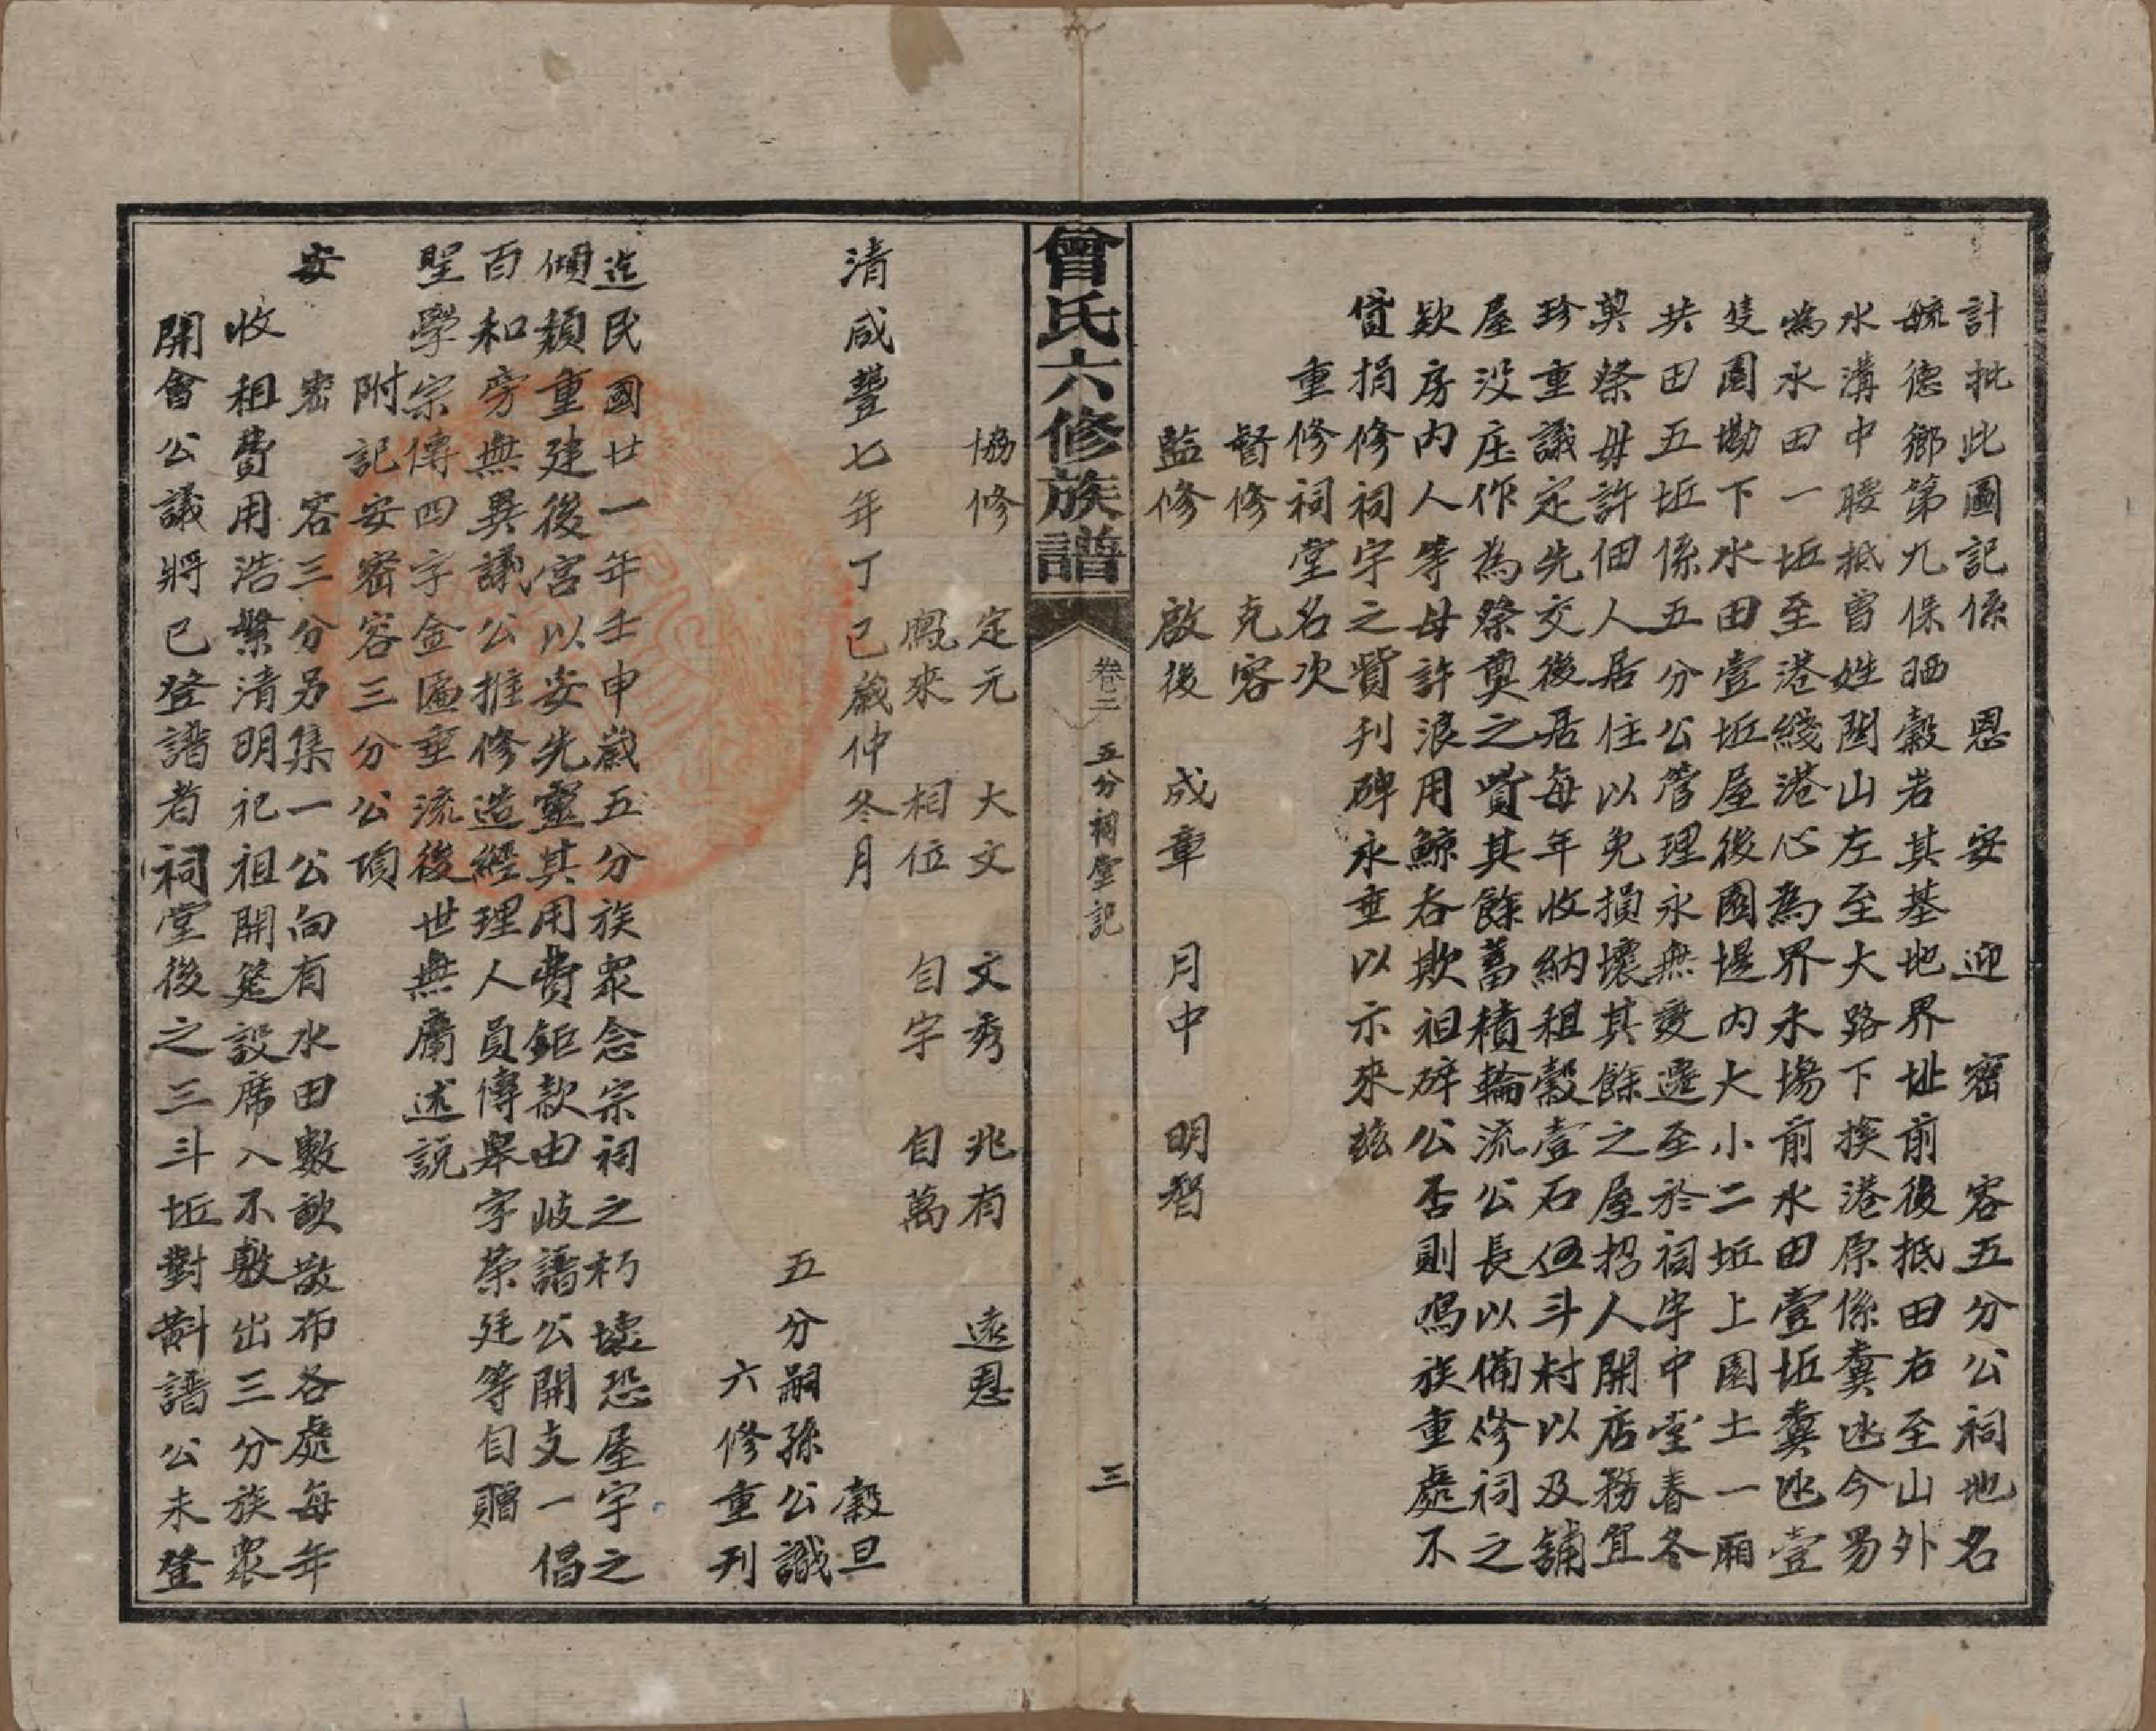 計批此圖記係　恩　安　迎　密　容五分公祠地名
毓德鄉第九保晒穀岩其基地界址前後抵田右至山外
水溝中腰抵曾姓關山左至大路下挨港原係糞凼今易
為水田一坵至港綫港心為界禾場前水田壹坵糞凼壹
隻園墈下水田壹坵屋後園堤內大小二坵上園土一廂
共田五坵係五分公管理永無変遷至於祠宇中堂春冬
奠祭毋許佃人居住以免損壞其餘之屋招人開店務宜
珍重議定先交後居每年收納租穀壹石伍斗村以及舖
屋没庄作為祭奠之貲其餘蓄積輪流公長以備修祠之
欵房內人等毋許浪用鯨吞欺祖磷公否則鳴族重處不
貸捐修祠宇之貲刊碑永垂以示來玆
重修祠堂名次
督修　克容
監修　啟後　成章　月中　明智
曾氏六修族譜　卷三　五分祠堂記　三
協修　定元　大文　文秀　兆有　遠恩
鳳來　相位　自宇　自萬
清咸豐七年丁巳歲仲冬月　穀旦
五分嗣孫公識
六修重刊
迄民國廿一年壬申歲五分族眾念宗祠之朽壞恐屋宇之
傾頹重建後宮以安先靈其用費鉅款由岐譜公開支一倡
百和旁無異議公推修造經理人員傳皋字榮廷等自贈
聖學宗傳四字金匾垂流後世無庸述說
附記安密容三分公項
安　密　容三分另集一公向有水田數畝散布各處每年
收租費用浩繁清明祀祖開筵設席入不敷出三分族衆
開會公議將已登譜者祠堂後之三斗坵對斟譜公未登